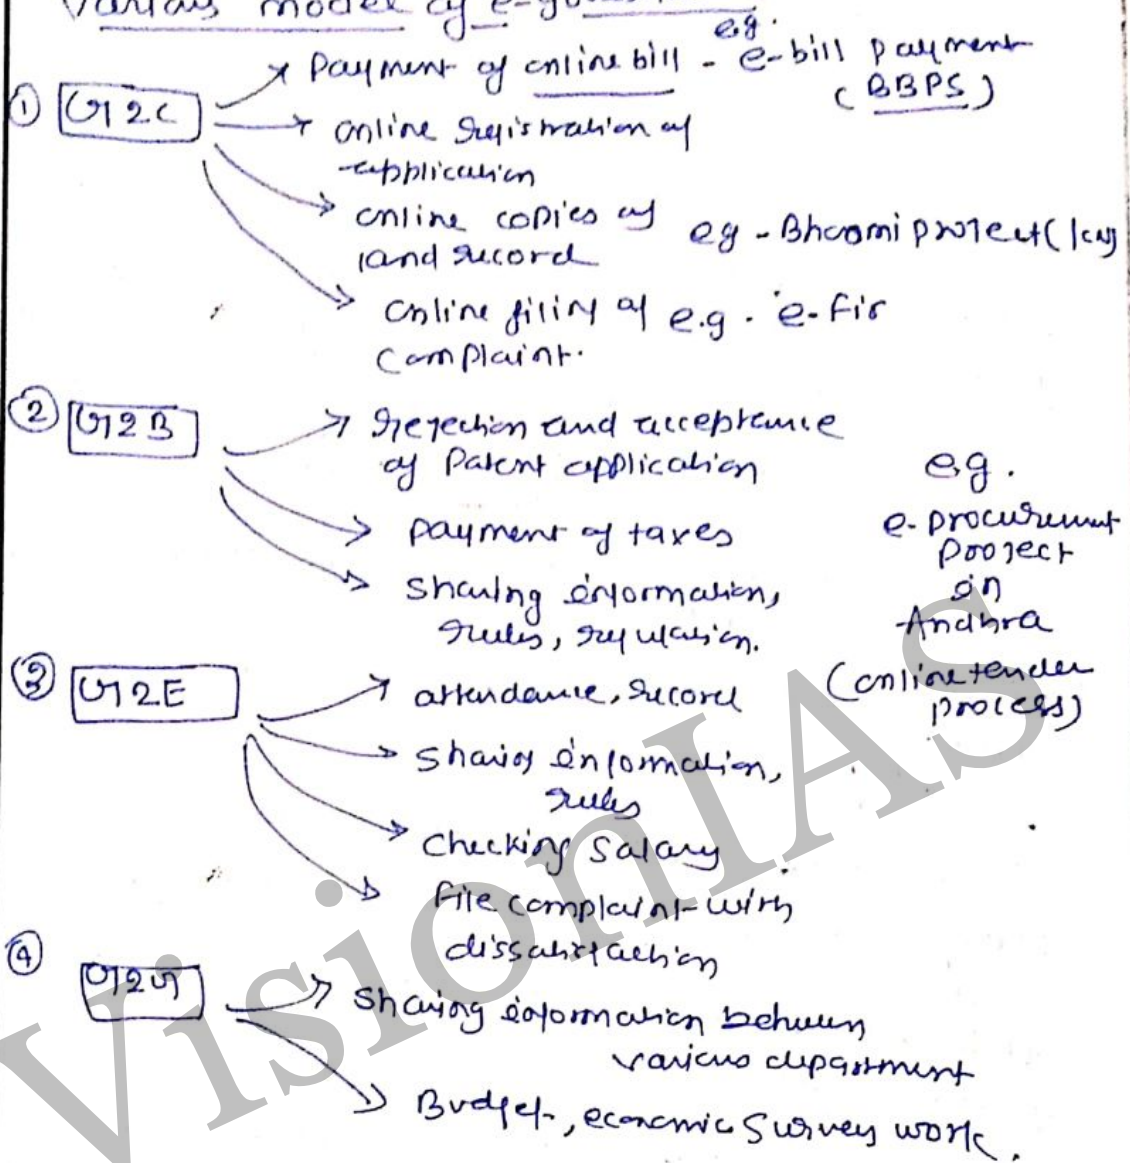 Various model of e-go
① G2C
Payment of online bill - e.g. e-bill payment
(BBPS)
online registration of
application
online copies of eg - Bhoomi project (
land record
online filing of e.g. e-fir
complaint.
② G2B
rejection and acceptance
of Patent application
payment of taxes
sharing information,
rules, regulation.
e.g.
e-procurement
project
in
Andhra
(online tender
process)
③ G2E
attendance, record
sharing information,
rules
checking salary
file complaint with
dissatisfaction
④ G2G
sharing information between
various department
Budget, economic survey work.
VisionIAS